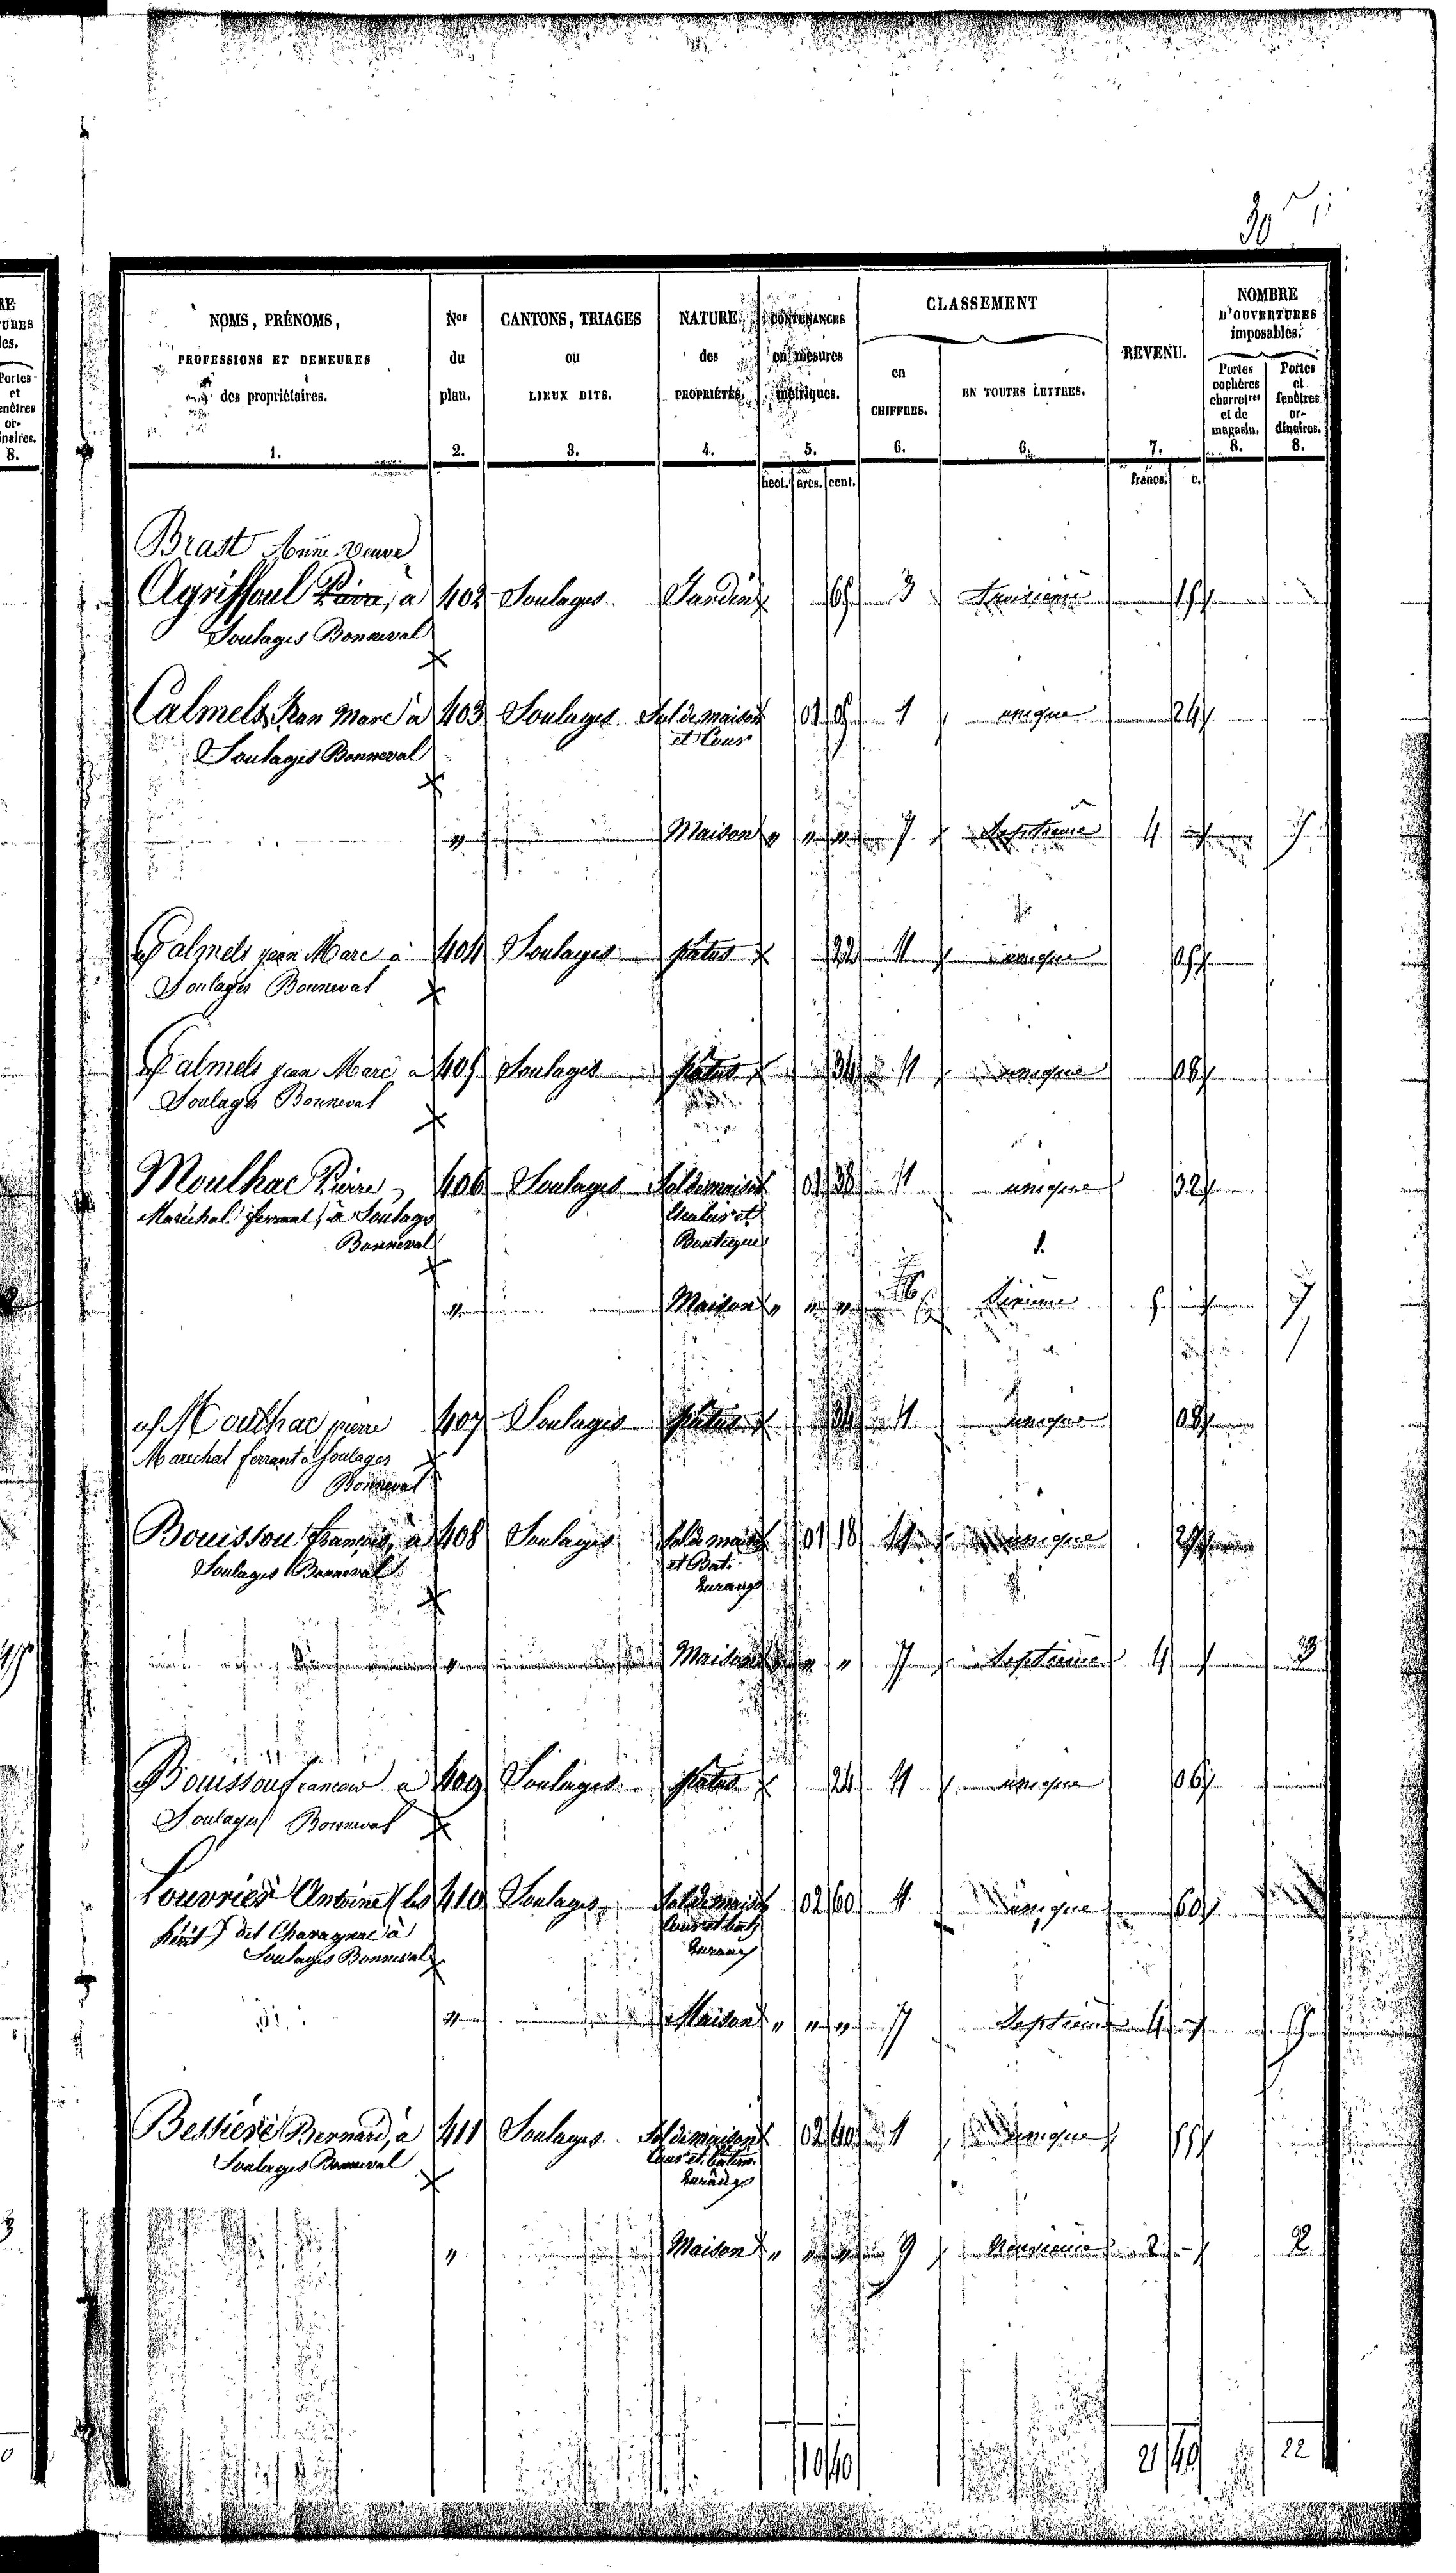 30
NOMS, PRÉNOMS, PROFESSIONS ET DEMEURES des propriétaires. 1.
Nos du plan. 2.
CANTONS, TRIAGES ou LIEUX DITS. 3.
NATURE des PROPRIÉTÉS. 4.
CONTENANCES en mesures métriques. 5.
CLASSEMENT
en CHIFFRES. 6.
EN TOUTES LETTRES. 6.
REVENU. 7.
NOMBRE D'OUVERTURES imposables.
Portes cochères charretres et de magasin. 8.
Portes et fenêtres or-dinaires. 8.
hect. ares. cent. francs. c.
Brast Anne Veuve
Agriffoul Pierre, à 402 Soulages Jardin 65 3 Troisième 15
Soulages Bonneval
Calmels Jean Marc à 403 Soulages Sol de maison 01 05 1 unique 24
et Cour
Soulages Bonneval
" Maison " " " 7 Septième 4 "
Calmels jean Marc à 404 Soulages patus 22 1 unique 05
Soulages Bonneval
Calmels jean Marc à 405 Soulages patus 34 1 unique 08
Soulages Bonneval
Moulhac Pierre 406 Soulages Sol de maison 01 38 1 unique 32
Maréchal ferrant, à Soulages
Bonneval Boutique
" Maison " " " 6 Sixième 5 "
Moulhac pierre 407 Soulages patus 34 1 unique 08
Marechal ferrant à Soulages
Bonneval
Bouissou François, à 408 Soulages Sol de maison 01 18 1 unique 27
Soulages Bonneval et Bat.
Rurang
" Maison " " 7 Septième 4 3
Bouissou francois à 409 Soulages patus 24 1 unique 06
Soulages Bonneval
Louvrier Antoine (les 410 Soulages Sol de maison 02 60 1 unique 60
hérit) dit Chavagnac à Cour et bat
Soulages Bonneval Rurang
" Maison " " " 7 Septième 4
Bessière Bernard, à 411 Soulages Sol de maison 02 40 1 unique 55
Soulages Bonneval Cour et batim
Rurang
" Maison " " " 9 Neuvième 2 2
10 40 21 40 22